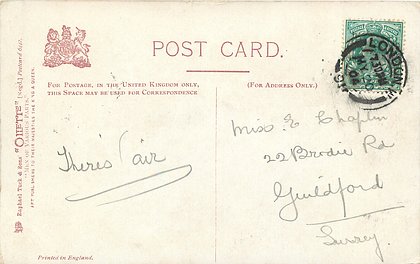 POST CARD.
FOR POSTAGE, IN THE UNITED KINGDOM ONLY,
THIS SPACE MAY BE USED FOR CORRESPONDENCE
(FOR ADDRESS ONLY.)
Raphael Tuck & Sons' "OILETTE" [Regd.] Postcard
ART PUBLISHERS TO THEIR MAJESTIES THE KING & QUEEN.
There's 'air
Miss E Chaplin
22 Brodie Rd
Guildford
Surrey.
LONDON
Printed in England.